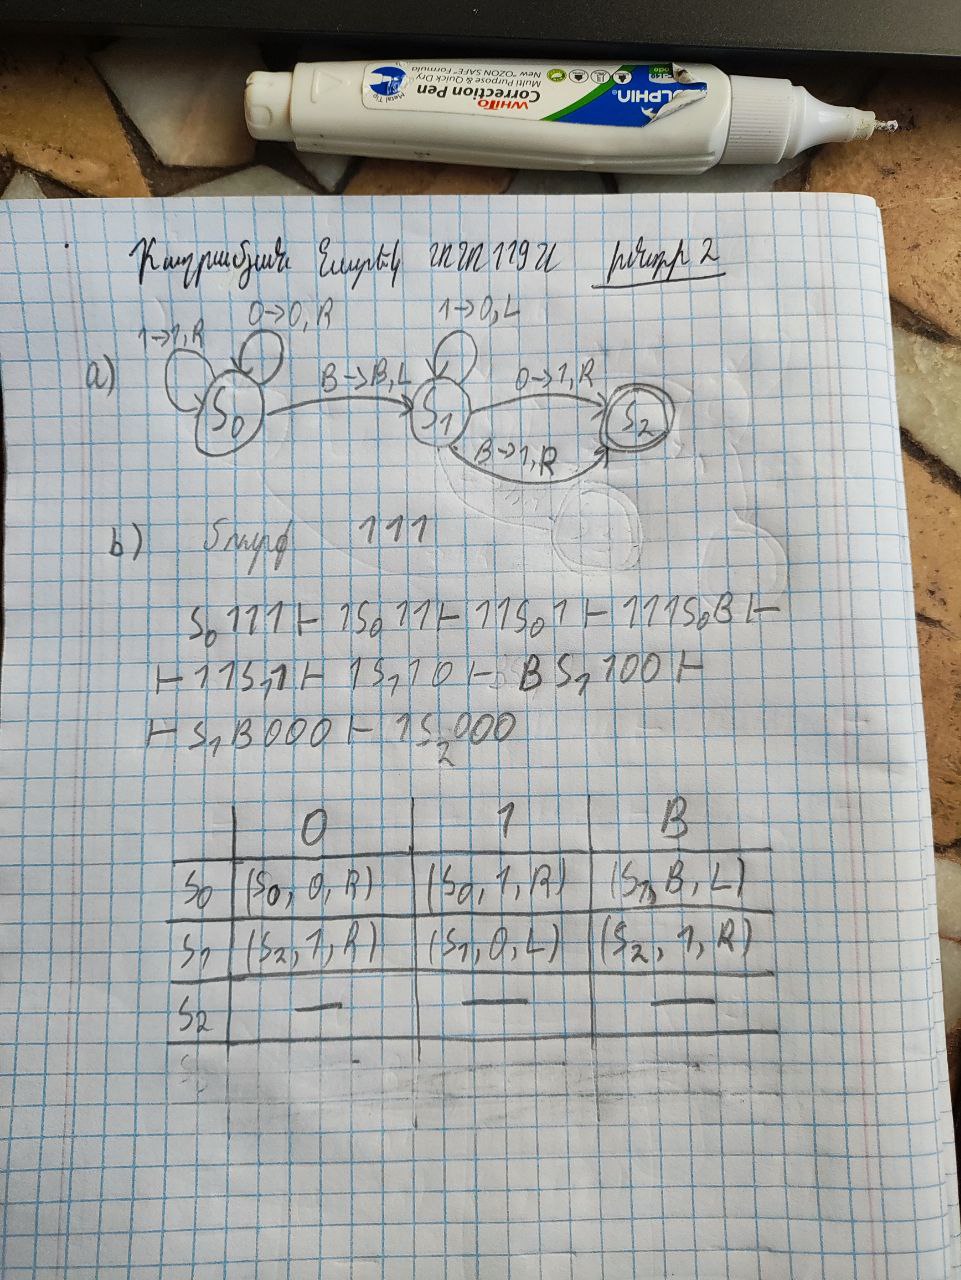 WHITO
Correction Pen
Multi Purpose & Quick Dry
New "OZON SAFE" Formula
Metal Tip
խնդիր 2
1→1,R
0→0,R
1→0,L
a)
S₀
B→B,L
S₁
0→1,R
S₂
B→1,R
b)
111
S₀111⊢ 1S₀11⊢ 11S₀1⊢ 111S₀B⊢
⊢11S₁1⊢ 1S₁10⊢ BS₁100⊢
⊢S₁B000⊢ 1S₂000
0 1 B
S₀ (S₀, 0, R) (S₀, 1, R) (S₁, B, L)
S₁ (S₂, 1, R) (S₁, 0, L) (S₂, 1, R)
S₂ — — —